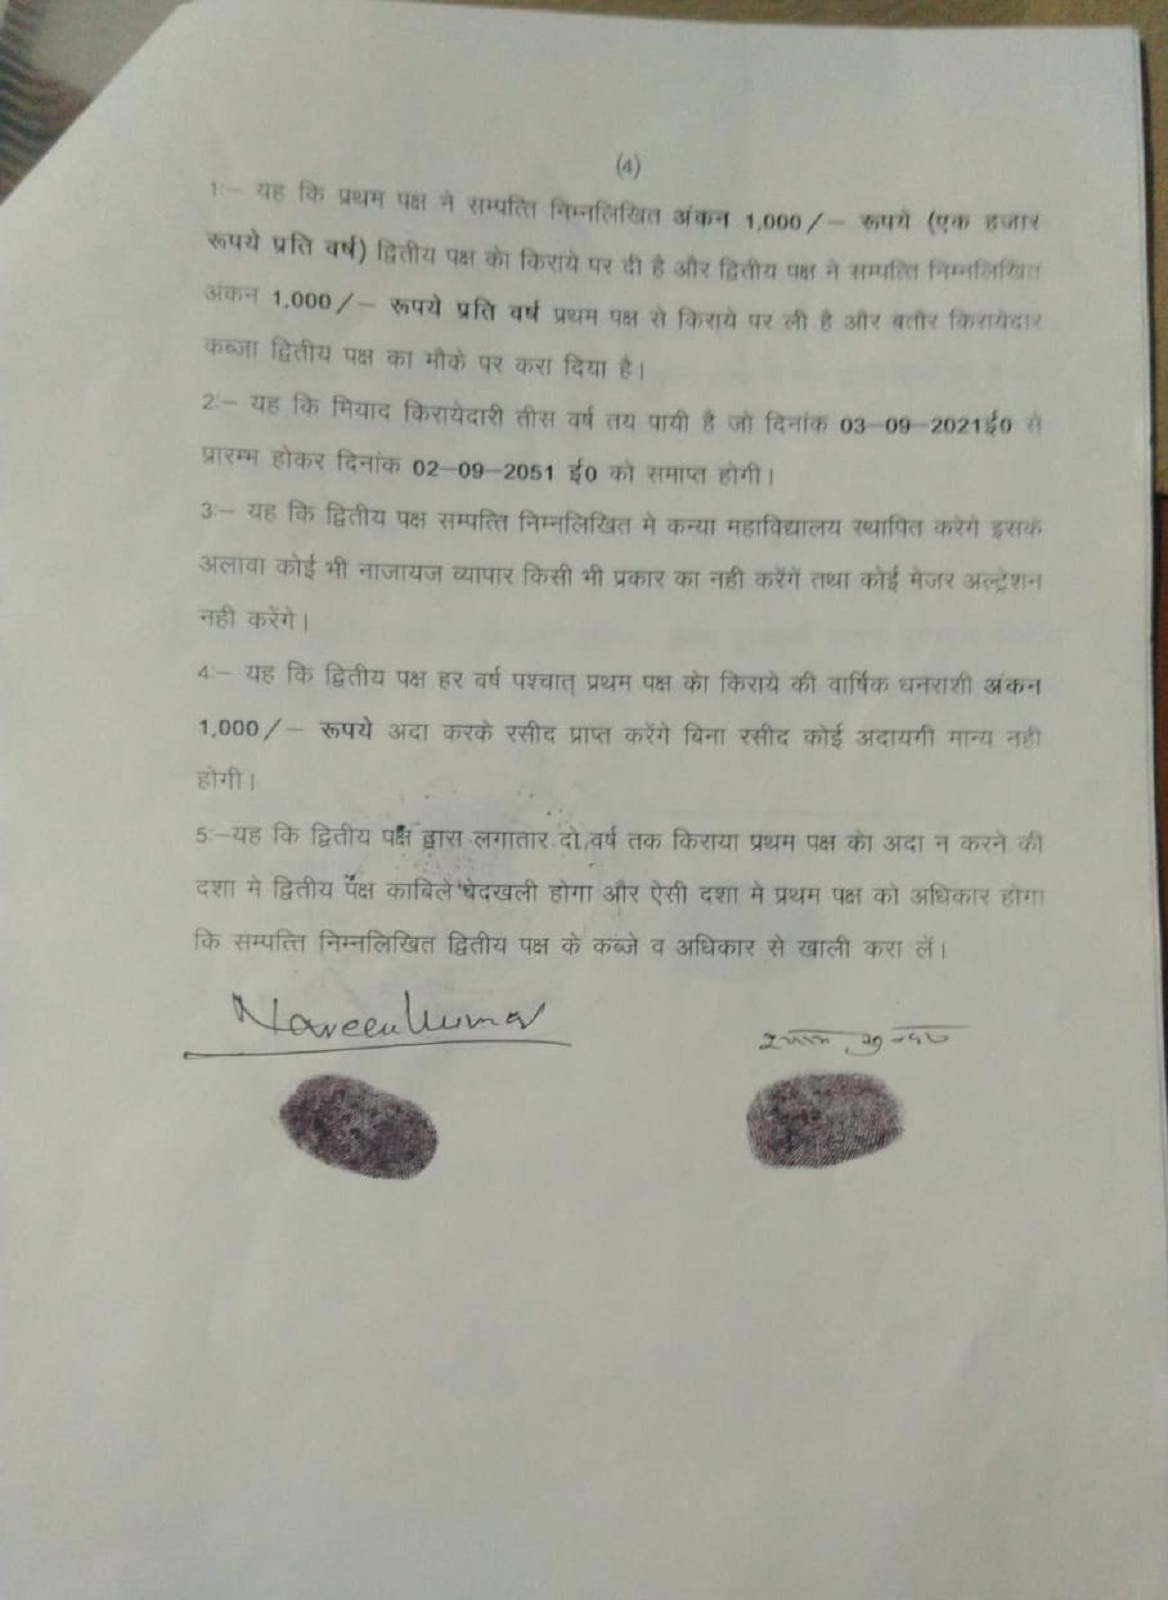 (4)
1:– यह कि प्रथम पक्ष ने सम्पत्ति निम्नलिखित अंकन 1,000/– रूपये (एक हजार
रूपये प्रति वर्ष) द्वितीय पक्ष को किराये पर दी है और द्वितीय पक्ष ने सम्पत्ति निम्नलिखित
अंकन 1,000/– रूपये प्रति वर्ष प्रथम पक्ष से किराये पर ली है और बतौर किरायेदार
कब्जा द्वितीय पक्ष का मौके पर करा दिया है।
2:– यह कि मियाद किरायेदारी तीस वर्ष तय पायी है जो दिनांक 03–09–2021ई0 से
प्रारम्भ होकर दिनांक 02–09–2051 ई0 को समाप्त होगी।
3:– यह कि द्वितीय पक्ष सम्पत्ति निम्नलिखित मे कन्या महाविद्यालय स्थापित करेगे इसके
अलावा कोई भी नाजायज व्यापार किसी भी प्रकार का नही करेंगें तथा कोई मेजर अल्ट्रेशन
नही करेंगे।
4:– यह कि द्वितीय पक्ष हर वर्ष पश्चात् प्रथम पक्ष को किराये की वार्षिक धनराशी अंकन
1,000/– रूपये अदा करके रसीद प्राप्त करेंगे बिना रसीद कोई अदायगी मान्य नही
होगी।
5:–यह कि द्वितीय पक्ष द्वारा लगातार दो वर्ष तक किराया प्रथम पक्ष को अदा न करने की
दशा मे द्वितीय पक्ष काबिले बेदखली होगा और ऐसी दशा मे प्रथम पक्ष को अधिकार होगा
कि सम्पत्ति निम्नलिखित द्वितीय पक्ष के कब्जे व अधिकार से खाली करा लें।
Naveen Kumar